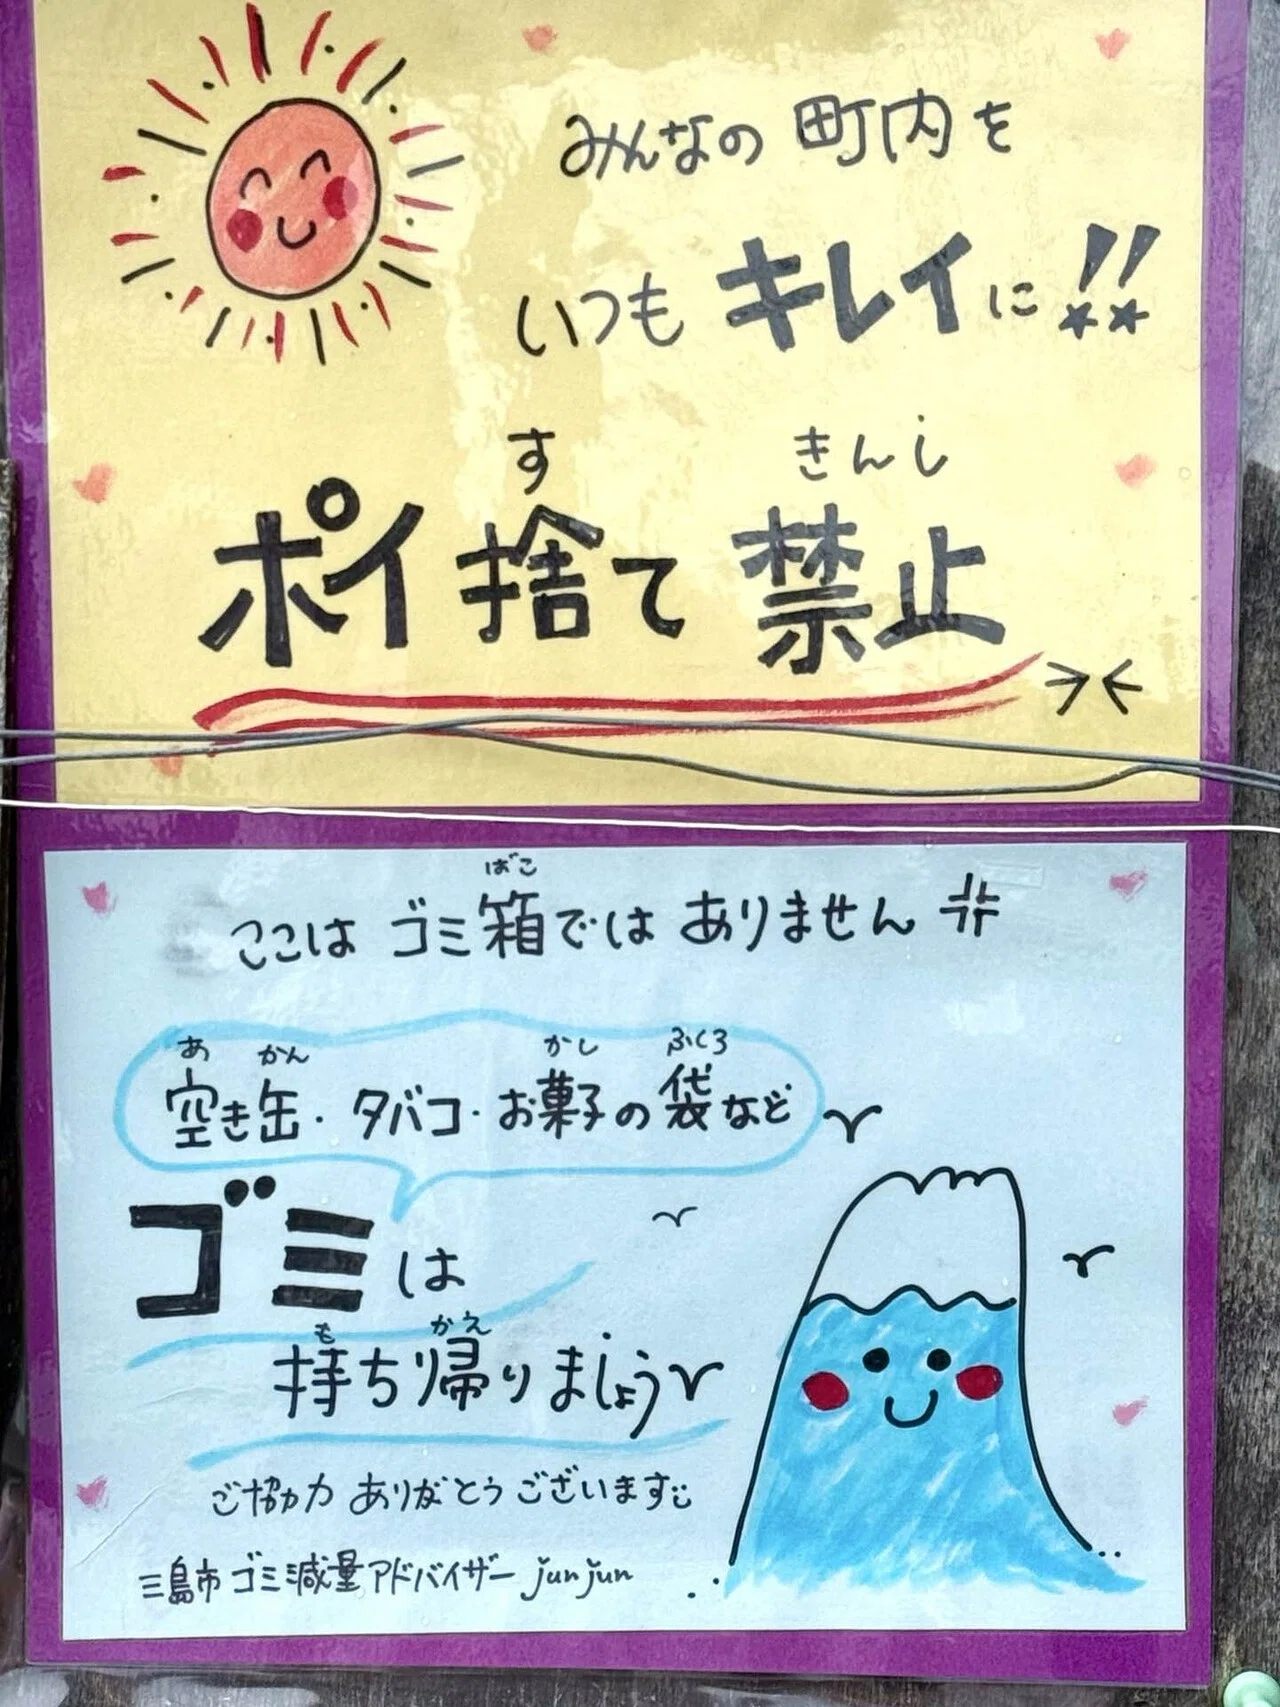 みんなの町内を
いつもキレイに!!
す きんし
ポイ捨て禁止
ばこ
ここはゴミ箱ではありません
あ かん かし ふくろ
空き缶・タバコ・お菓子の袋など
ゴミは
も かえ
持ち帰りましょう
ご協力ありがとうございます
三島市ゴミ減量アドバイザーjunjun